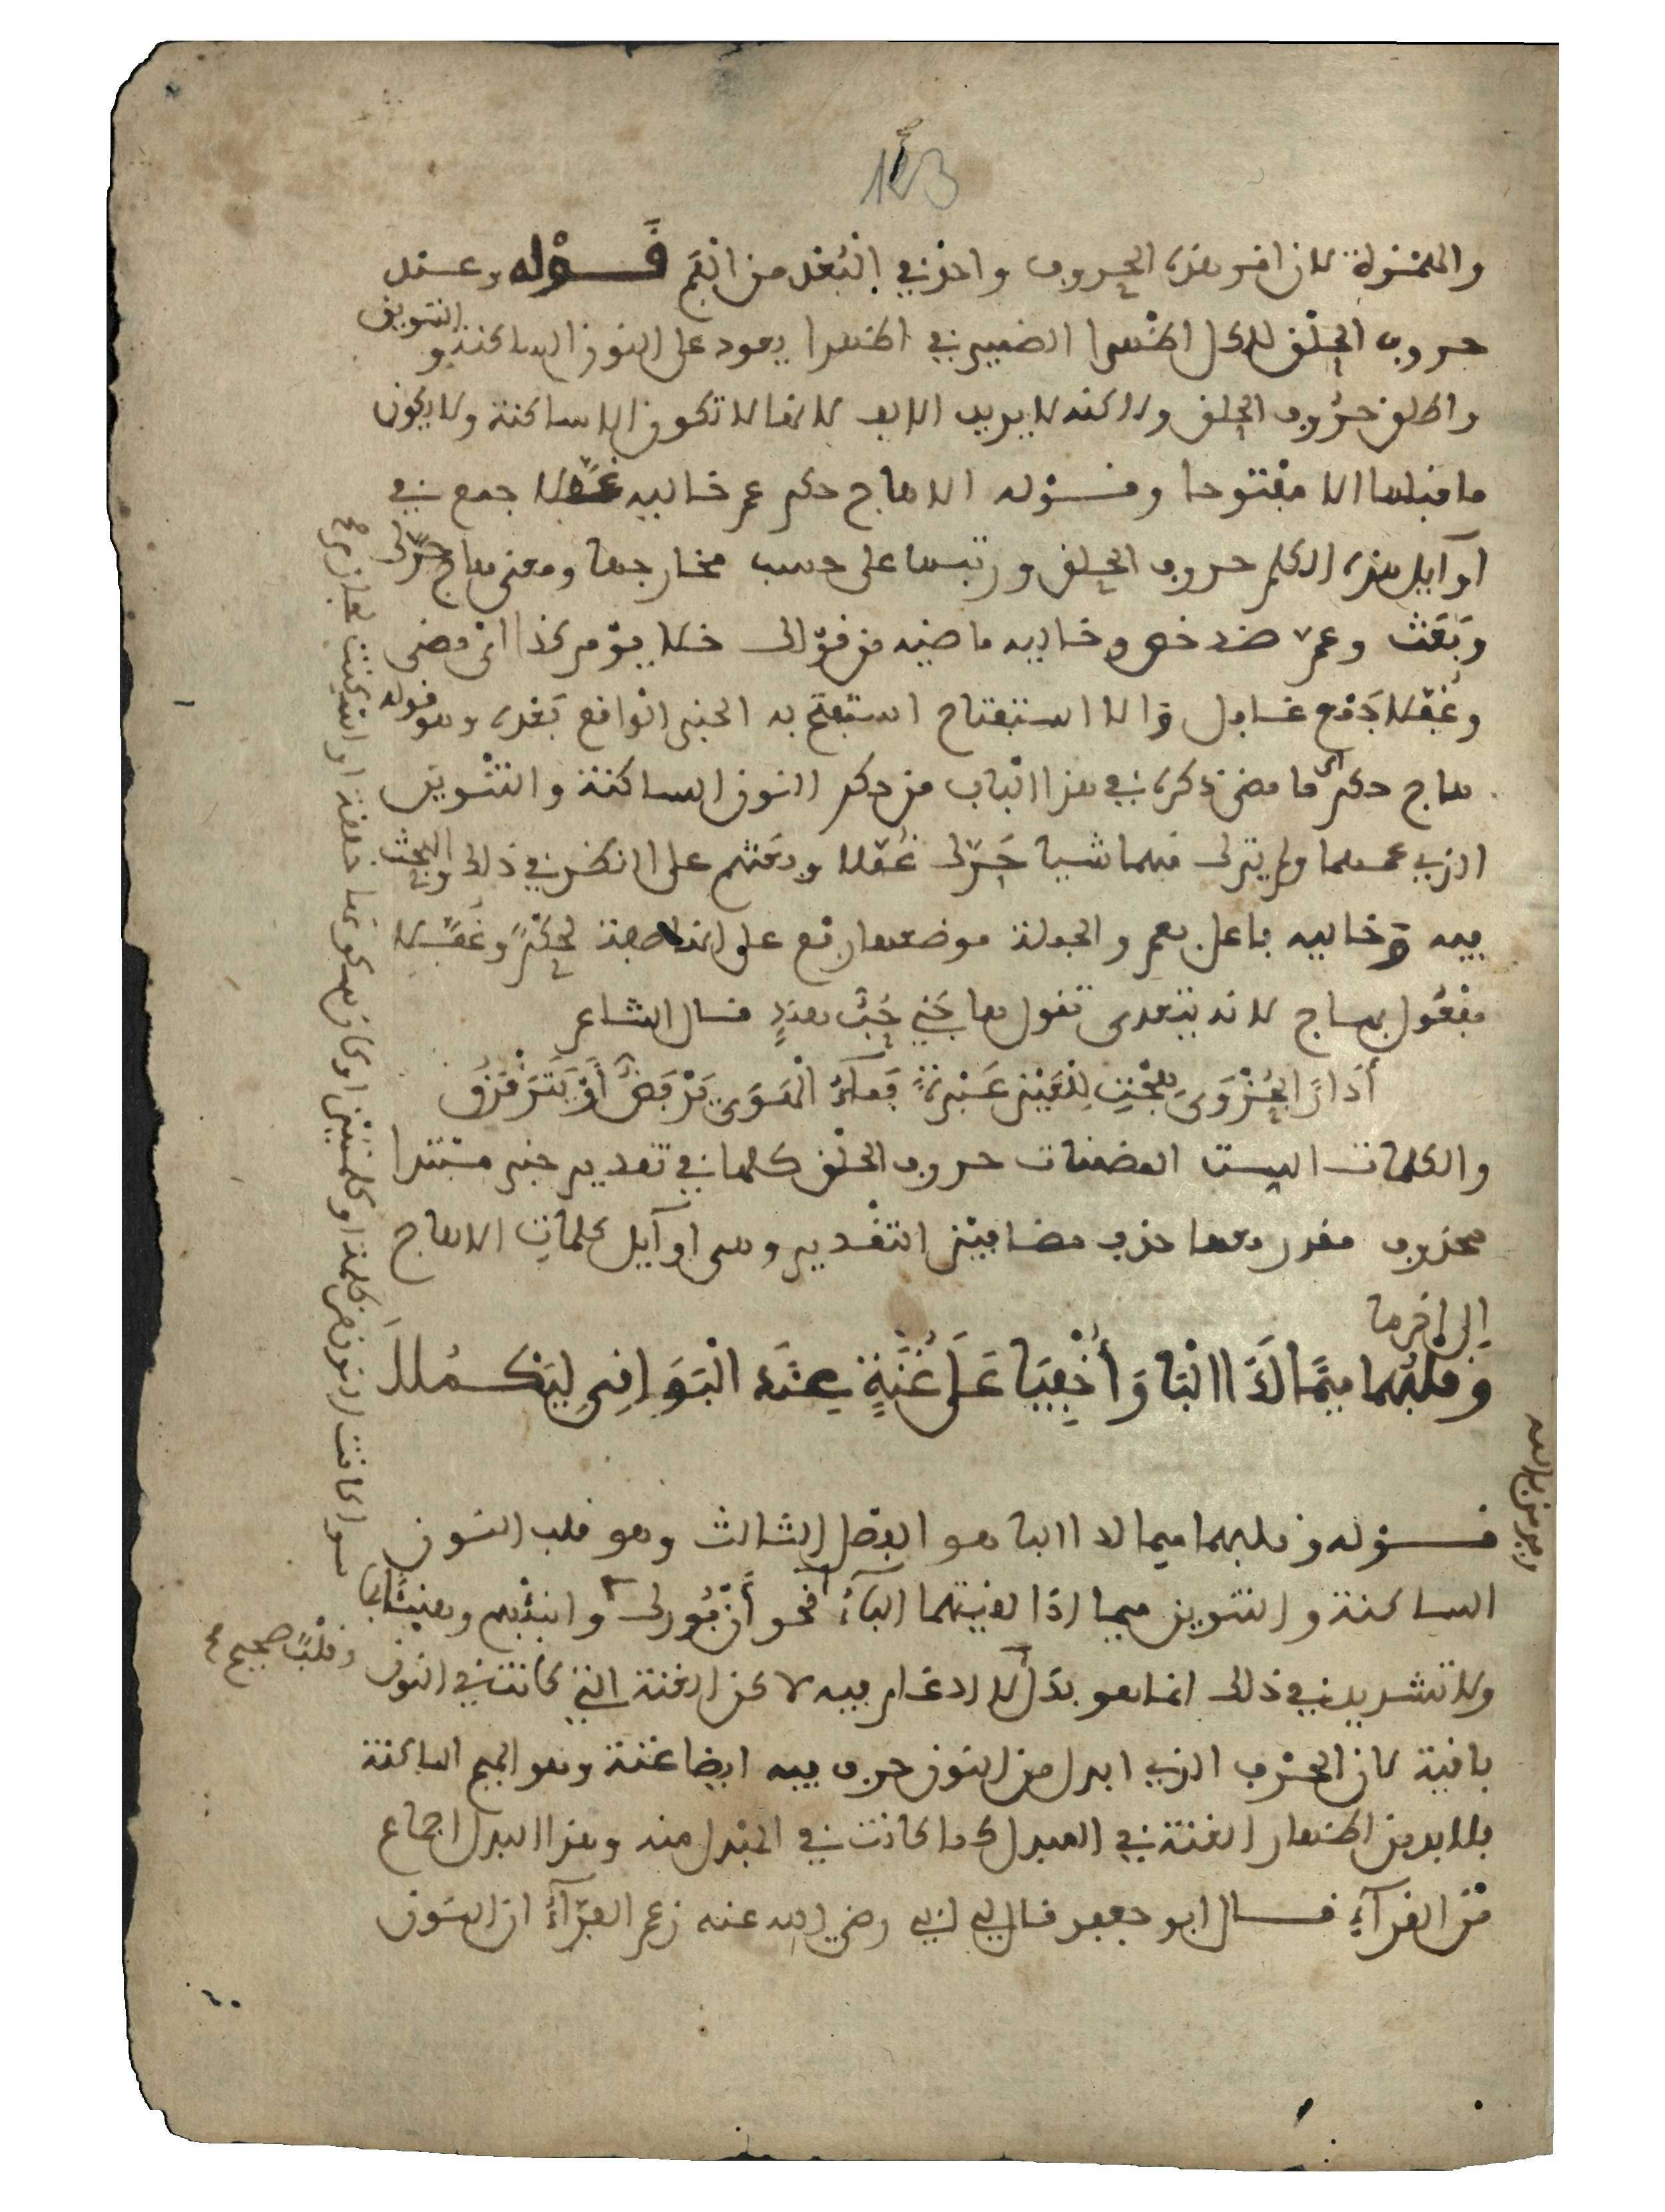 123
والمنزلة لان اقرب هذه الحروف واحد في البعد من الفم قوله وعند
حروف الحلق للكل اظهرا الضمير في اظهرا يعود على النون الساكنة والتنوين
واطلق حروف الحلق ولاكنه لا يريد الالف لانها لا تكون الا ساكنة ولا يكون
ما قبلها الا مفتوحا وقوله الا هاج حكم عم خاليه غفلا جمع في
اوآيل هذه الكلم حروف الحلق ورتبها على حسب مخارجها ومعنى هاج حرّك
وبَعَث وعم ضد خص وخاليه ماضيه من قولك خلا يوم كذا اي مضى
وغُفّلا جمع غافل والا استفتاح استفتح به الخبر الواقع بَعْده وهو قوله
هاج حكم اي ما مضى ذكره في هذا الباب من حكم النون الساكنة والتنوين
الذي عمهما ولم يترك منهما شيا حَرّك غُفّلا وبعثهم على النظر في ذلك والبحث
فيه وخاليه فاعل بعم والجملة موضعها رفع على انها صفة لحُكْمٌ وغُفّلا
مفعول بهاج لانه يتعدى تقول هاجَني حُبّ هندٍ قال الشاعر
أدَارًا بِحُزْوَى هِجْتِ لِلْعَيْنِ عَبْرَةً فَمَآءُ الْهَوَى يَرْفَضُّ أوْ يَتَرَقْرَقُ
والكلمات الست المضمنات حروف الحلق كلها في تقدير خبر مبتدا
محذوف مقدر معها حذف مضافين التقدير وهي اوآيل كلمات الا هاج
إلى اخرها
وَقَلْبُهُما مِيمًا لَدَا الْبَا وَأُخْفِيَا عَلَى غُنَّةٍ عِنْدَ الْبَوَاقِي لِيَكْمُلَا
قوله وقلبهما ميما لدا البا هو الفصل الثالث وهو قلب النون
الساكنة والتنوين ميما اذا لقيتهما البآء نحو أنْ بُورك وانبئهم وهنيئا بما
ولا تشديد في ذلك انما هو بدَل لا ادغام فيه لاكن الغنة التي كانت في النون
باقية لان الحرف الذي ابدل من النون حرف فيه ايضا غنة وهو الميم الساكنة
فلا بد من اظهار الغنة في المبدل كما كانت في المبدل منه وهذا البدل اجماع
مْن القرآءِ قال ابو جعفر قال لي ابي رضي الله عنه زعم الفرّآءُ ان النون
وقلْبًا صحيح
سوا كانت النون من كلمة او كلمتين او كان سكونها خلفة او اسكنت لجازم صح